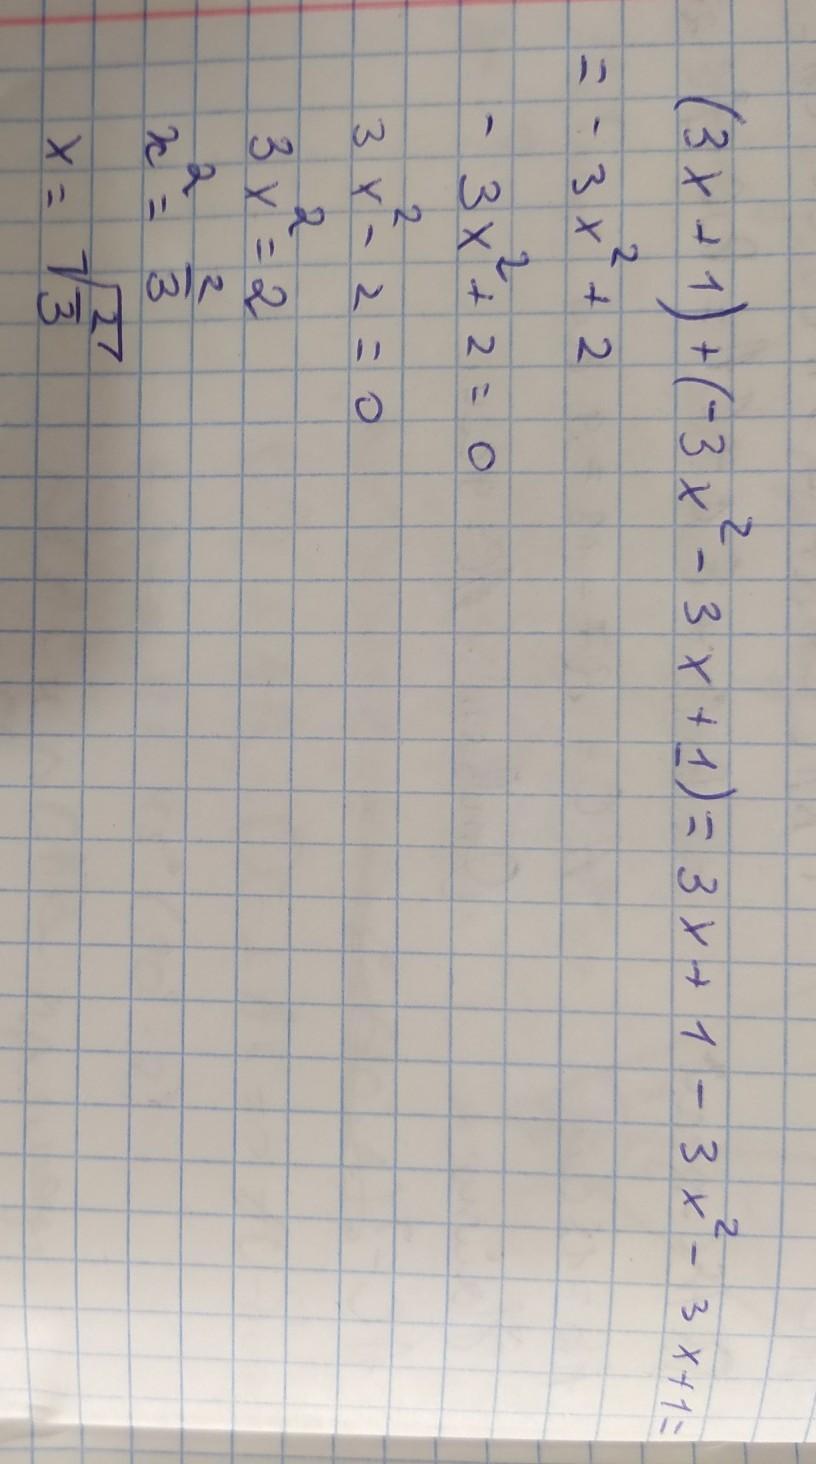 (3x+1)+(-3x²-3x+1)=3x+1-3x²-3x+1=
=-3x²+2
-3x²+2=0
3x²-2=0
3x²=2
x²=2/3
x=√2/3